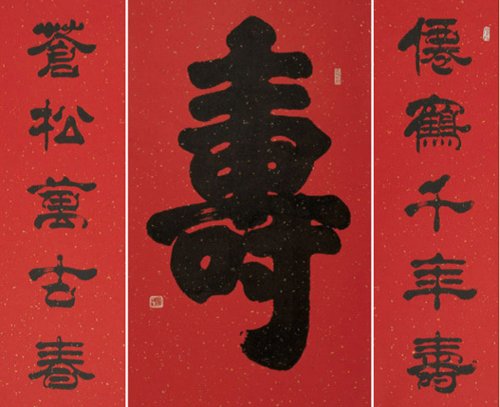 僊鶴千年壽
壽
蒼松萬古春